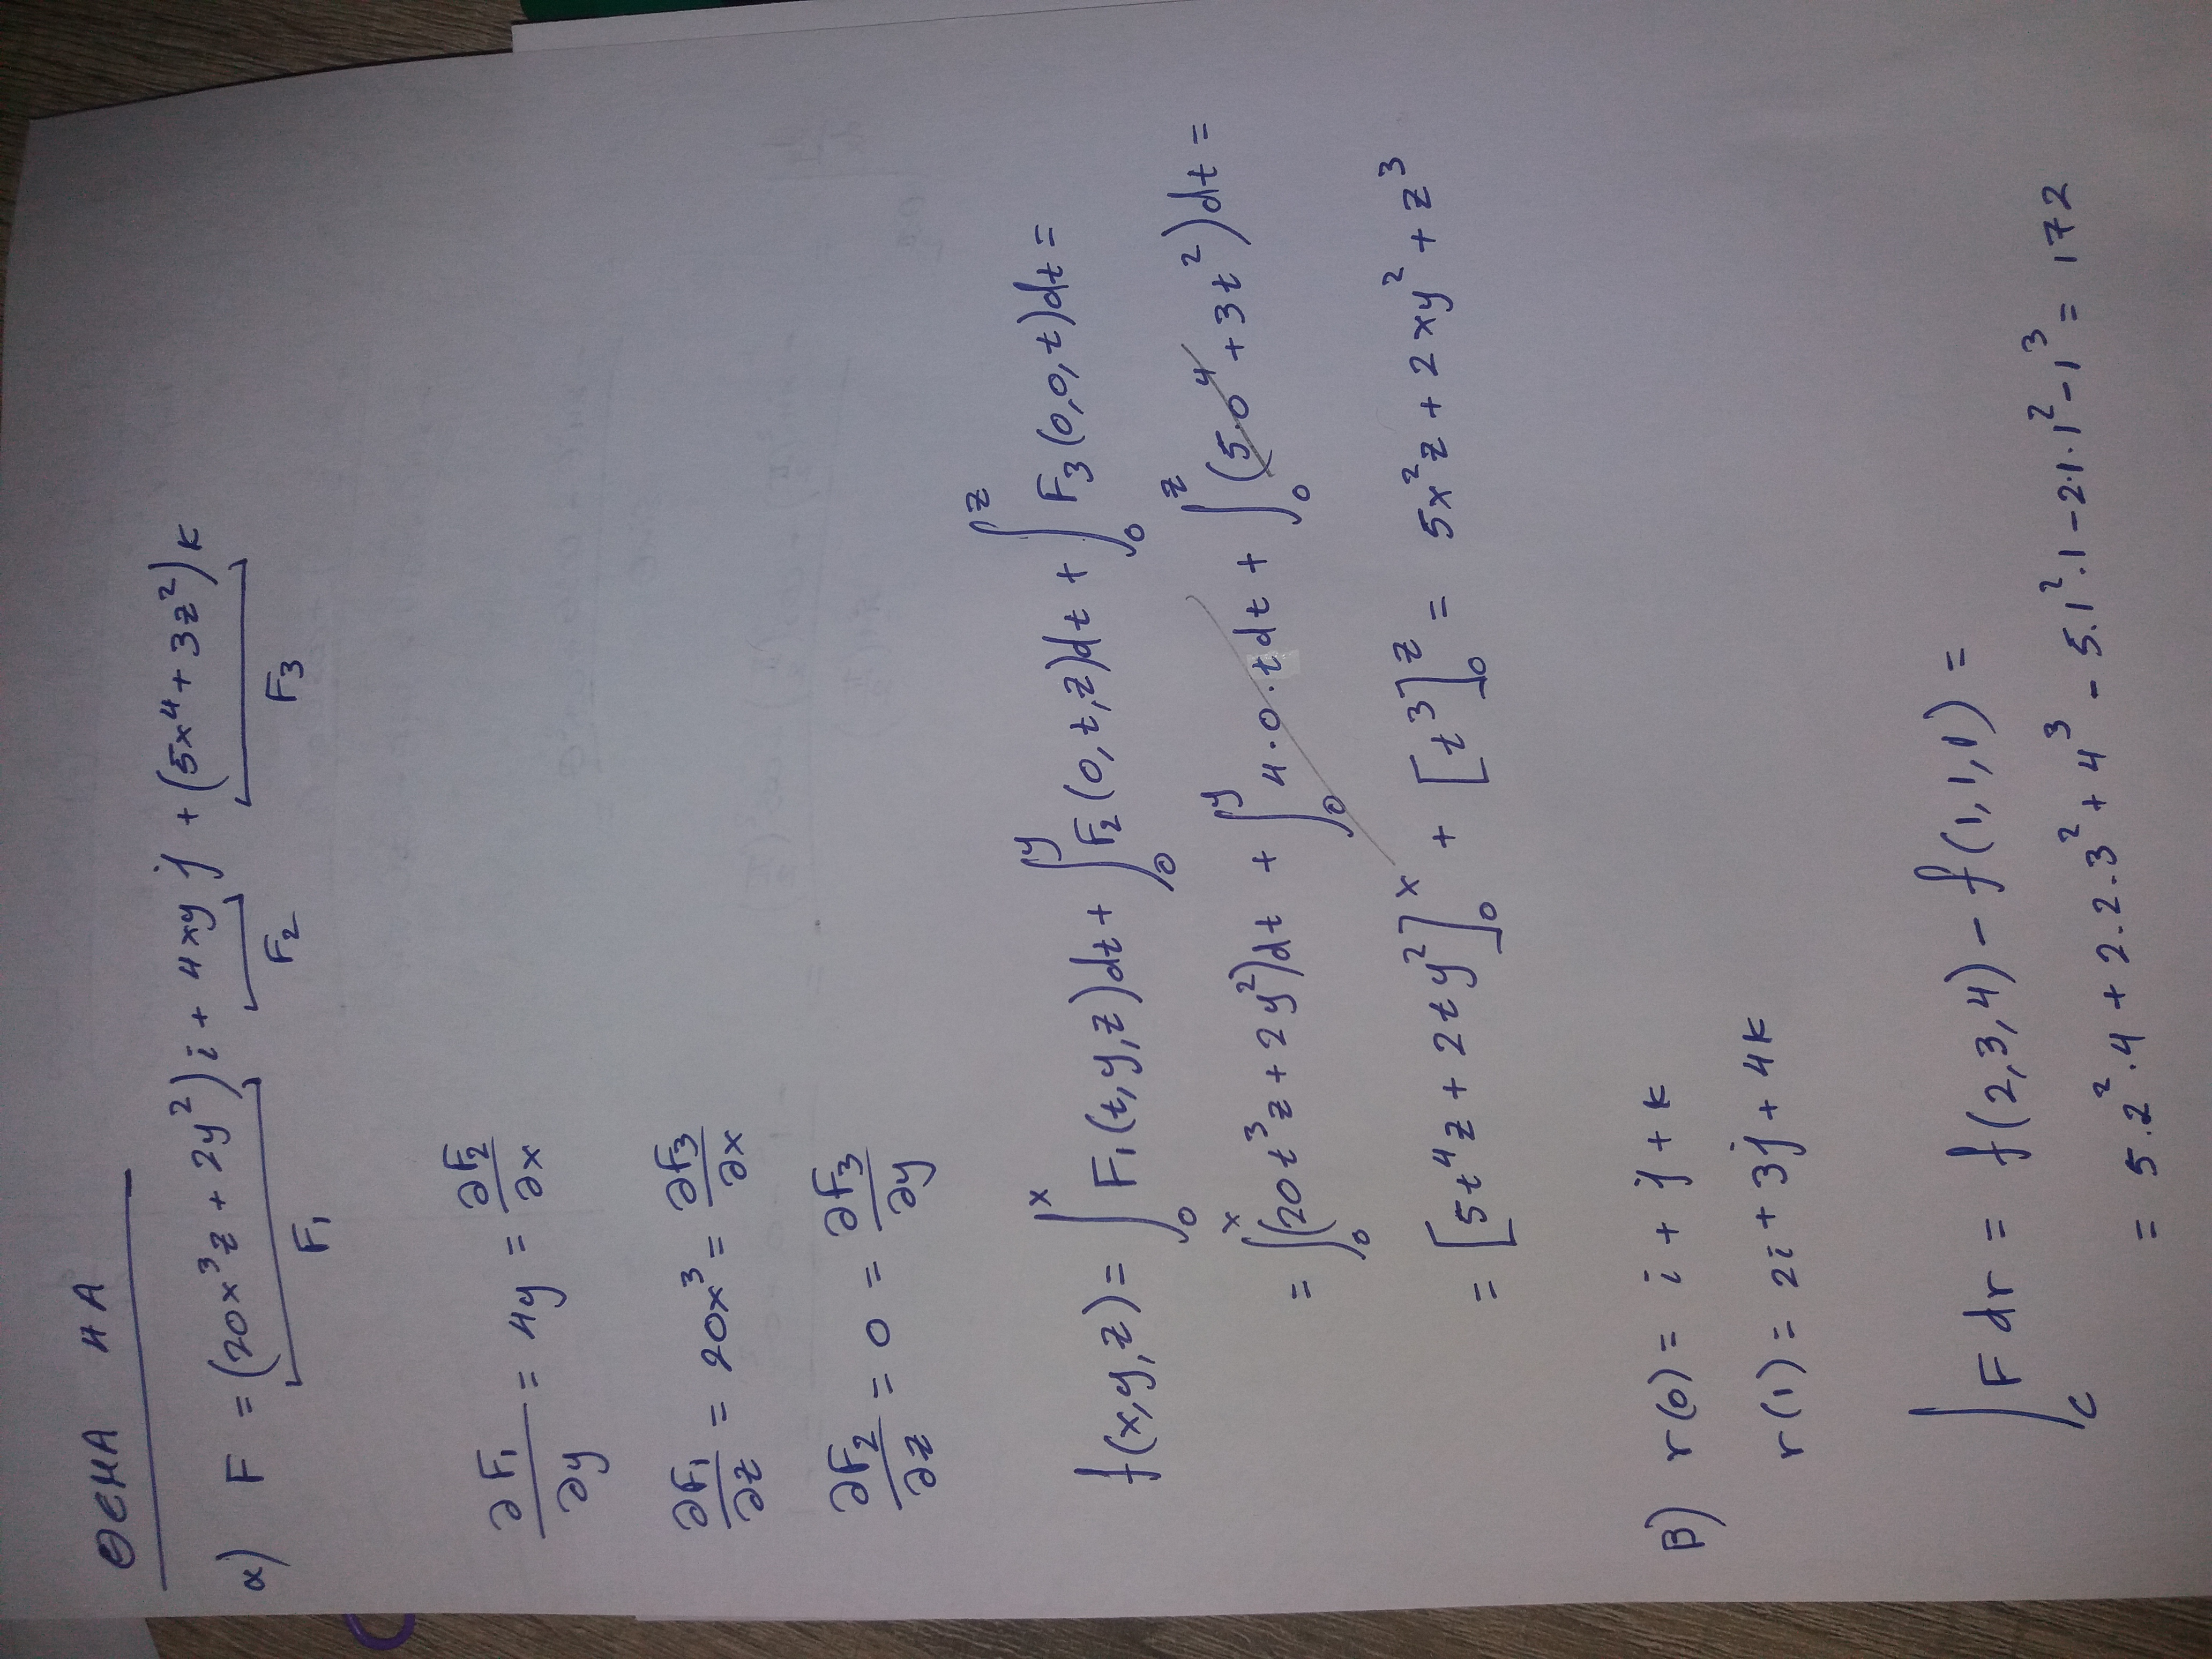 ΘΕΜΑ 4Α
α) F = (20x³z + 2y²)i + 4xy j + (5x⁴ + 3z²)k
F₁ F₂ F₃
∂F₁/∂y = 4y = ∂F₂/∂x
∂F₁/∂z = 20x³ = ∂F₃/∂x
∂F₂/∂z = 0 = ∂F₃/∂y
f(x,y,z) = ∫₀ˣ F₁(t,y,z)dt + ∫₀ʸ F₂(0,t,z)dt + ∫₀ᶻ F₃(0,0,t)dt =
= ∫₀ˣ (20t³z + 2y²)dt + ∫₀ʸ 4·0·t dt + ∫₀ᶻ (5·0⁴ + 3t²)dt =
= [5t⁴z + 2ty²]₀ˣ + [t³]₀ᶻ = 5x²z + 2xy² + z³
β) r(0) = i + j + k
r(1) = 2i + 3j + 4k
∫_C F dr = f(2,3,4) - f(1,1,1) =
= 5·2²·4 + 2·2·3² + 4³ - 5·1²·1 - 2·1·1² - 1³ = 172